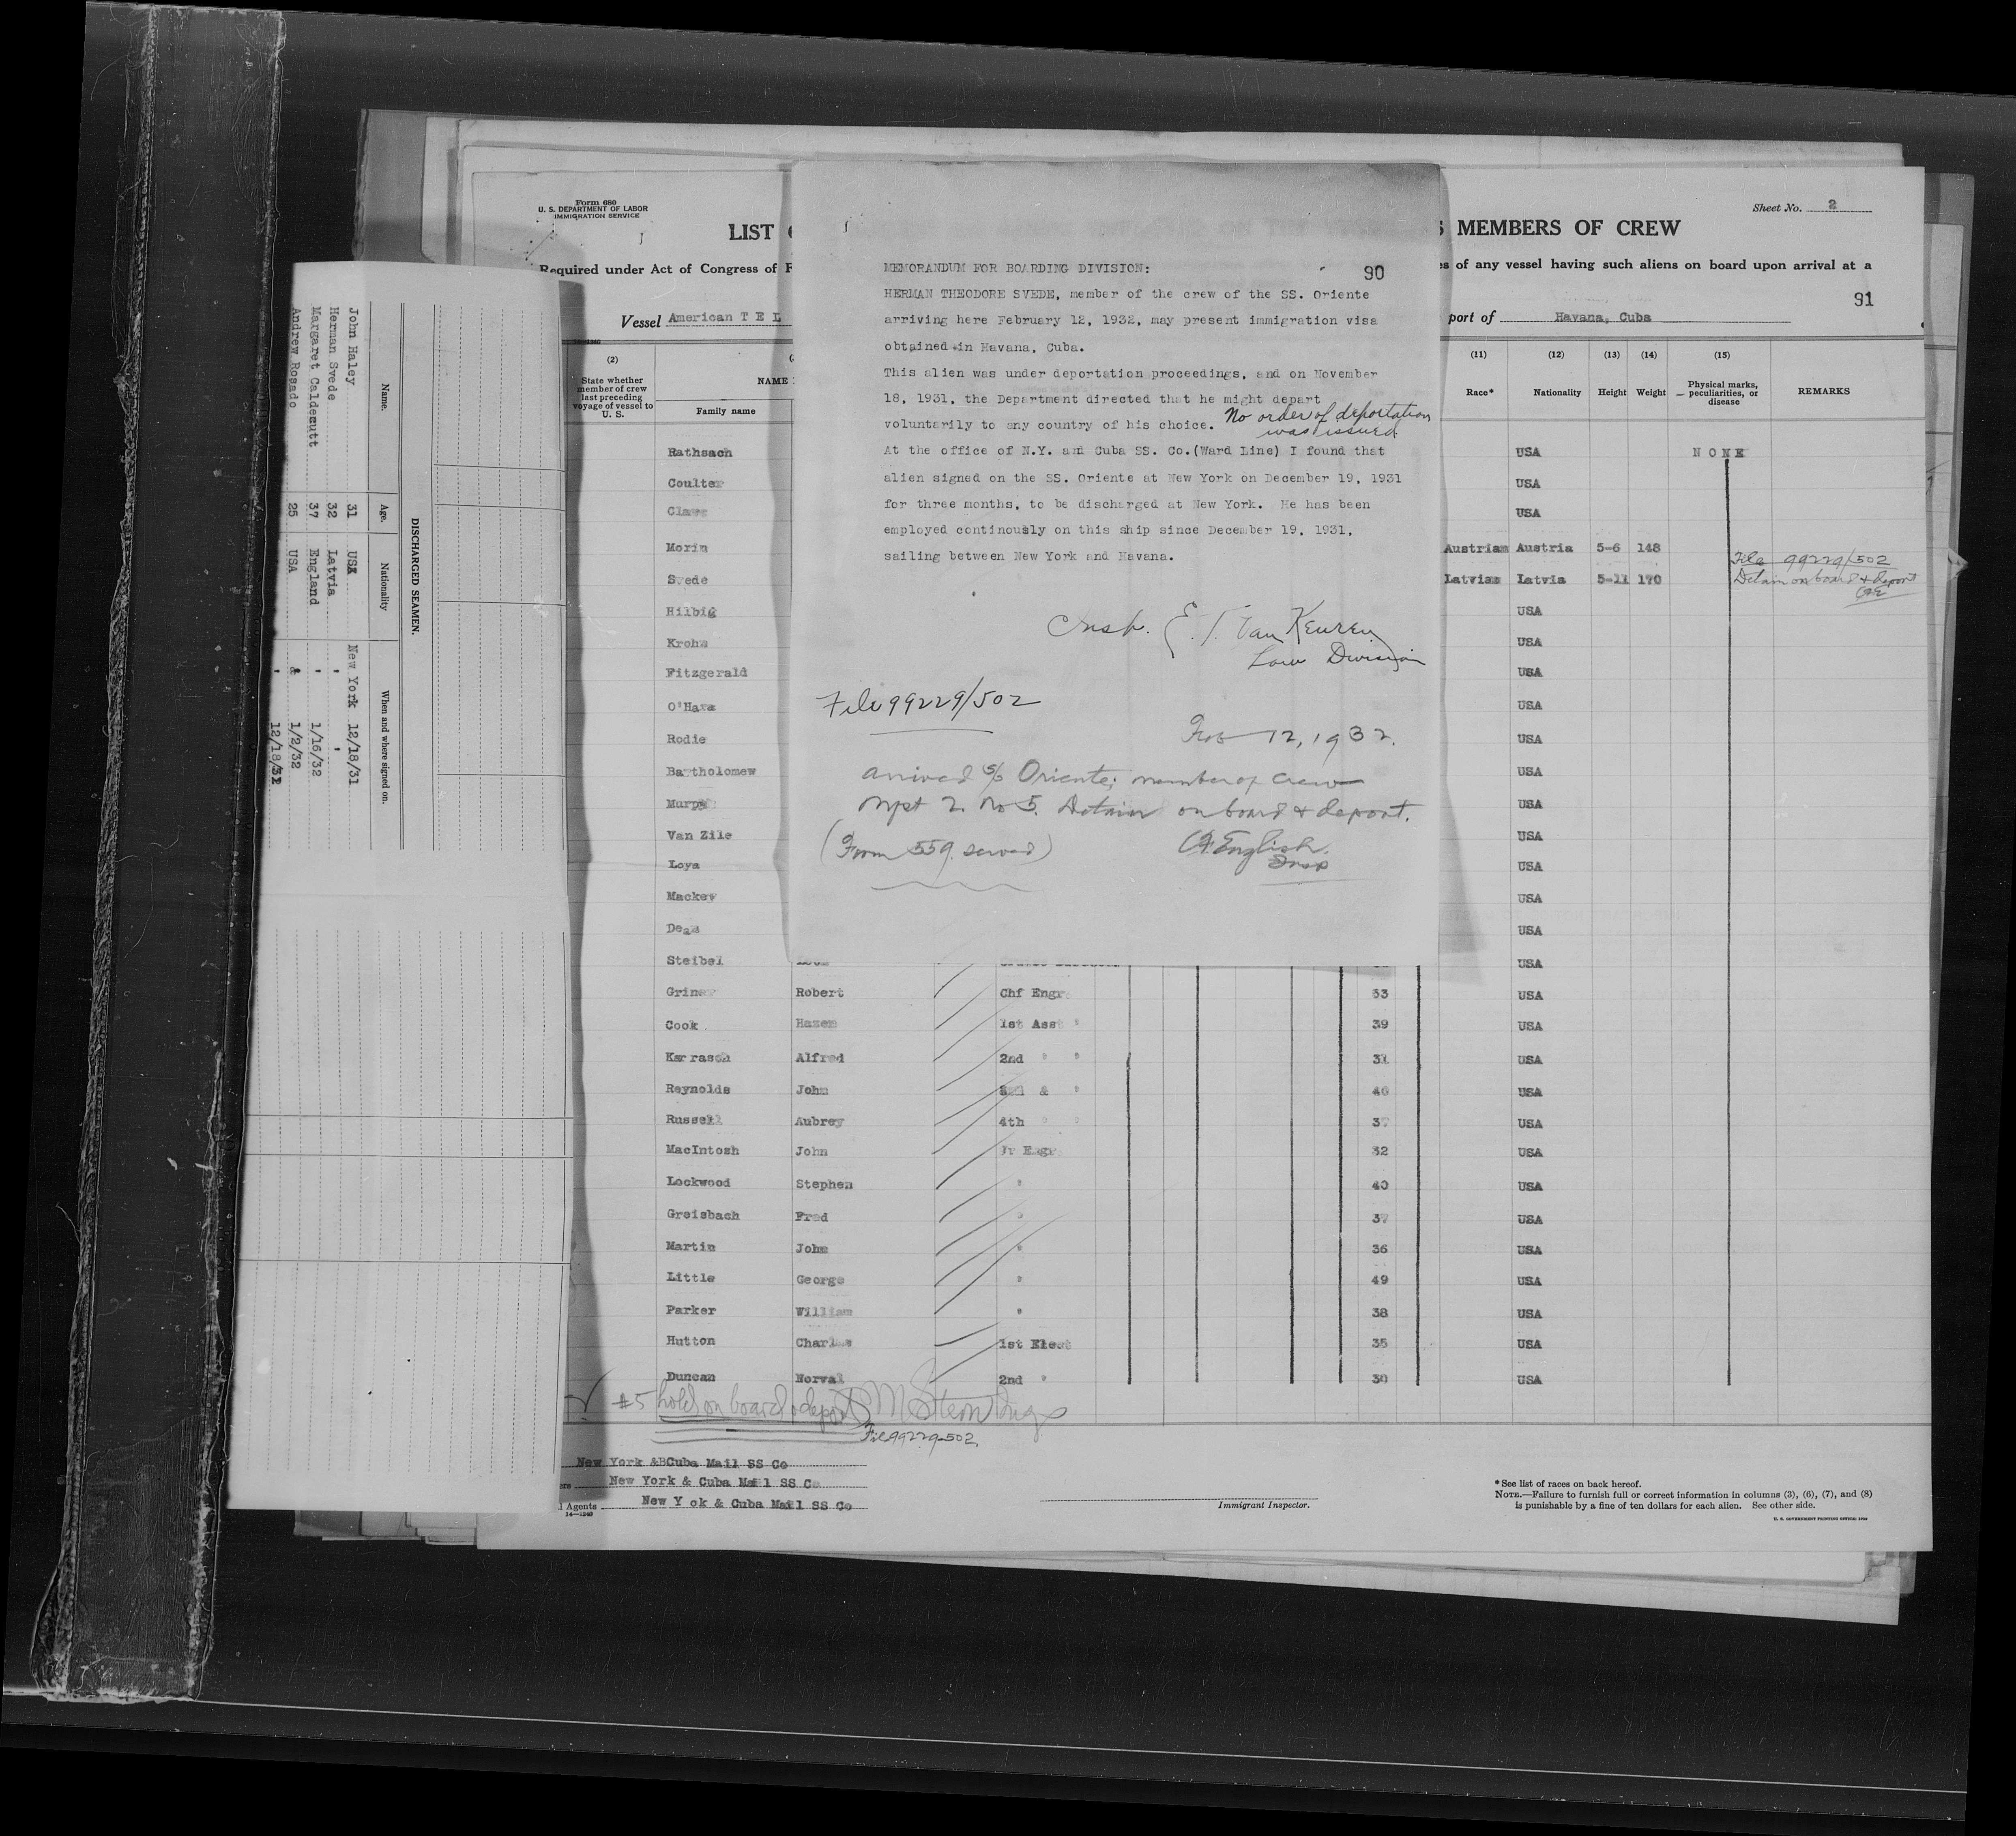 John Haley 31 USA New York 12/18/31
Herman Svede 32 Latvia " "
Margaret Caldecutt 37 England " 1/16/32
Andrew Rosado 25 USA & 1/2/32
" 12/18/31
Name. Age. Nationality When and where signed on.
DISCHARGED SEAMEN.
Form 680
U. S. DEPARTMENT OF LABOR
IMMIGRATION SERVICE
Sheet No. 2
LIST
MEMBERS OF CREW
Required under Act of Congress of
of any vessel having such aliens on board upon arrival at a
91
Vessel American T E L
port of Havana, Cuba
(2) (11) (12) (13) (14) (15)
State whether member of crew last preceding voyage of vessel to U. S.
NAME
Family name
Race* Nationality Height Weight Physical marks, peculiarities, or disease REMARKS
MEMORANDUM FOR BOARDING DIVISION: 90
HERMAN THEODORE SVEDE, member of the crew of the SS. Oriente
arriving here February 12, 1932, may present immigration visa
obtained in Havana, Cuba.
This alien was under deportation proceedings, and on November
18, 1931, the Department directed that he might depart
voluntarily to any country of his choice. No order of deportation
was issued.
At the office of N.Y. and Cuba SS. Co.(Ward Line) I found that
alien signed on the SS. Oriente at New York on December 19, 1931
for three months, to be discharged at New York. He has been
employed continously on this ship since December 19, 1931,
sailing between New York and Havana.
Insp. E. T. Van Keuren
Law Division
File 99229/502
Feb 12, 1932.
Arrived S/S Oriente; member of crew
Mfst 2. No 5. Detain on board & deport.
(Form 559 served) English.
Insp
Rathsach USA NONE
Coulter USA
USA
Morin Austrian Austria 5-6 148
File 99229/502
Svede Latvian Latvia 5-11 170 Detain on board & deport
Hilbig USA
Krohn USA
Fitzgerald USA
O'Hara USA
Rodie USA
Bartholomew USA
USA
Van Zile USA
Loya USA
Mackey USA
USA
Steibel USA
Robert Chf Engr 53 USA
Cook Hazen 1st Asst " 39 USA
Karrasch Alfred 2nd " " 31 USA
Reynolds John & " 40 USA
Russell Aubrey 4th " " 37 USA
MacIntosh John Jr Engr 32 USA
Lockwood Stephen " 40 USA
Greisbach Fred " 37 USA
Martin John " 36 USA
Little George " 49 USA
Parker William " 38 USA
Hutton Charles 1st Elect 35 USA
Duncan Norval 2nd " 30 USA
#5 hold on board & deport
File 99229-502.
New York &BCuba Mail SS Co
New York & Cuba Mail SS Co
Agents New Y ok & Cuba Mail SS Co
14—1240
Immigrant Inspector.
*See list of races on back hereof.
NOTE.—Failure to furnish full or correct information in columns (3), (6), (7), and (8)
is punishable by a fine of ten dollars for each alien. See other side.